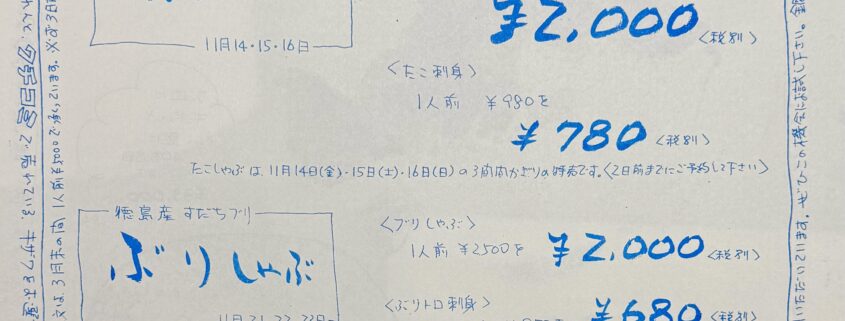 ¥2,000 〈税別〉
11月14・15・16日
〈たこ刺身〉
1人前 ¥980を
¥780 〈税別〉
たこしゃぶは、11月14日(金)・15日(土)・16日(日)の3日間かぎりの特売です。〈2日前までにご予約して下さい〉
徳島産 すだちブリ
ぶりしゃぶ
〈ブリしゃぶ〉
1人前 ¥2500を ¥2,000 〈税別〉
〈ぶりトロ刺身〉
¥680 〈税別〉
3月末の間、1人前¥5000で承っています。
いただいています。ぜひこの機会にお試し下さい。